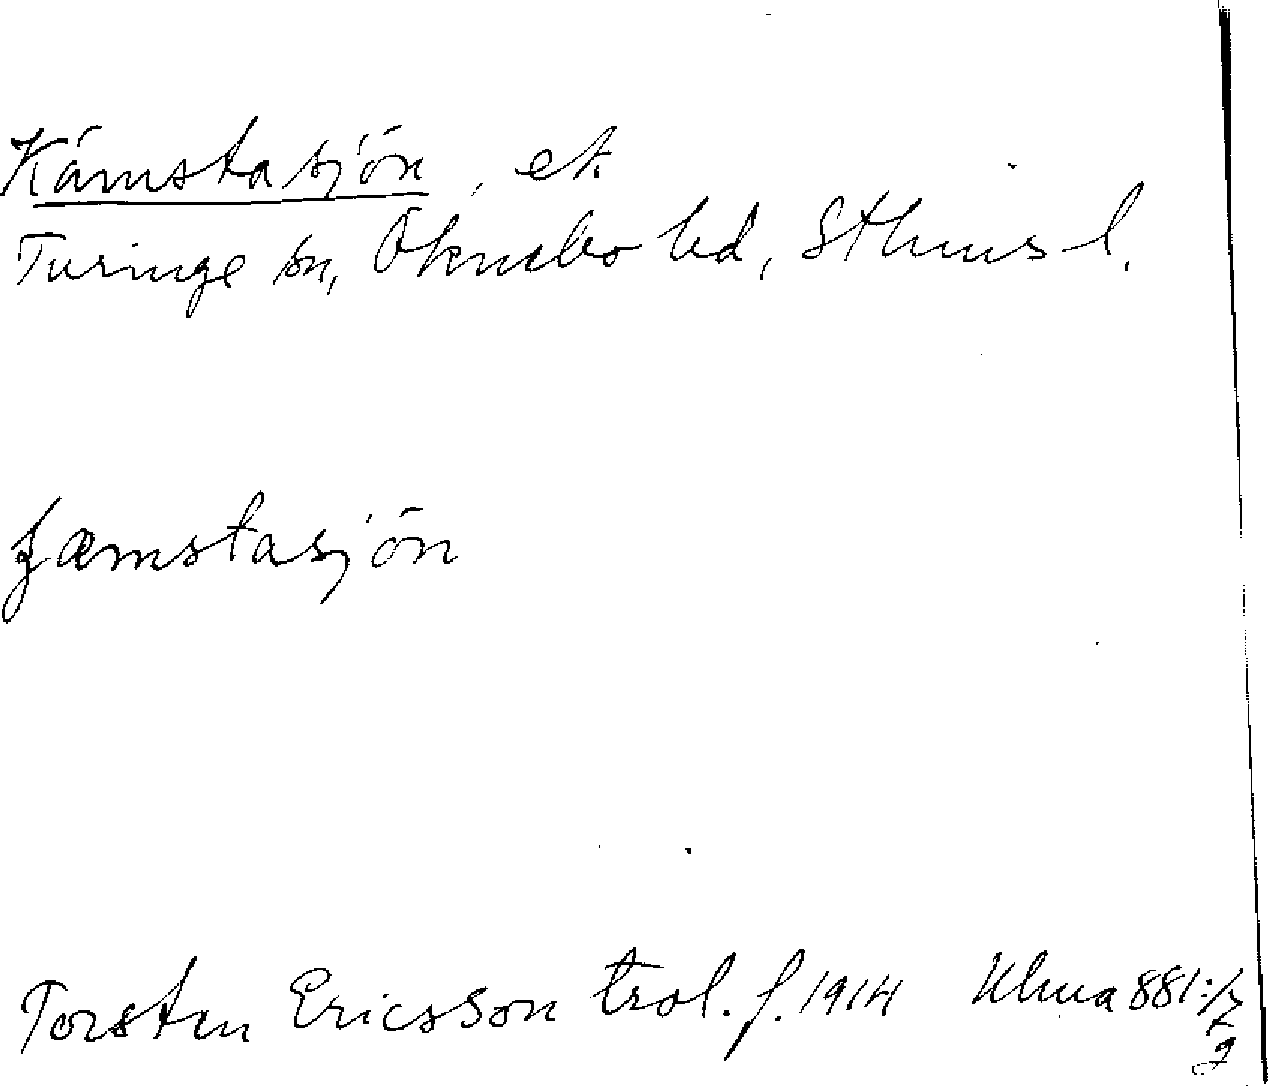 Kämstasjön, ek.
Turinge sn, Öknebo hd, Sthms l.
ʒæmstasjön
Torsten Ericsson trol. f. 1914